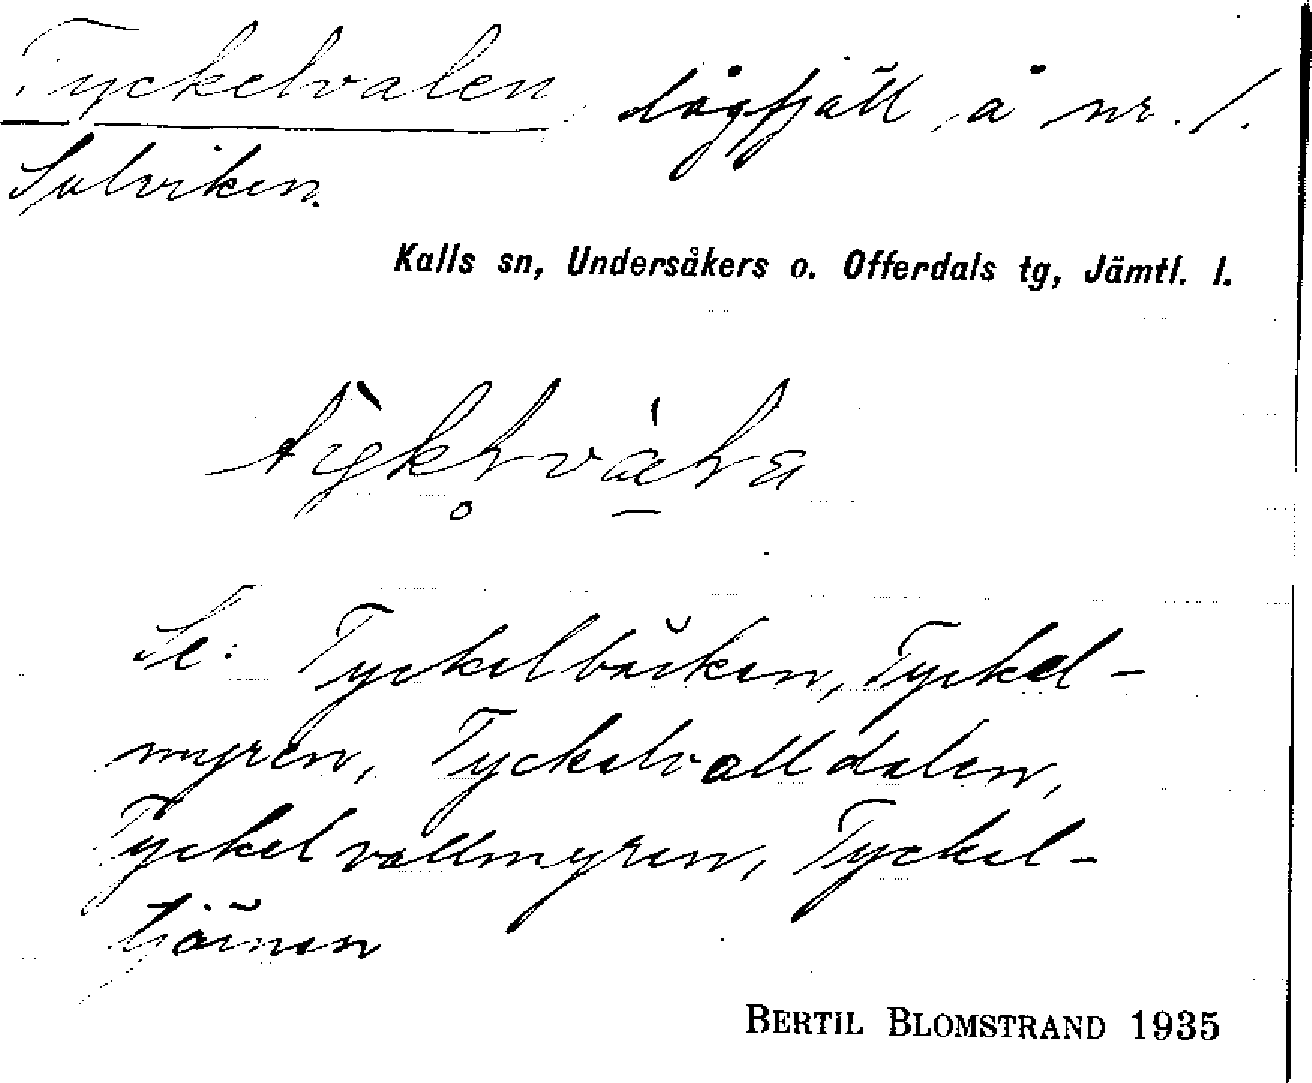 Tyckelvalen, lågfjäll, å nr. 1.
Sulviken.
Kalls sn, Undersåkers o. Offerdals tg, Jämtl. l.
Se: Tyckelbäcken, Tyckel-
myren, Tyckelvalldalen,
Tyckelvallmyren, Tyckel-
tjärnen
BERTIL BLOMSTRAND 1935